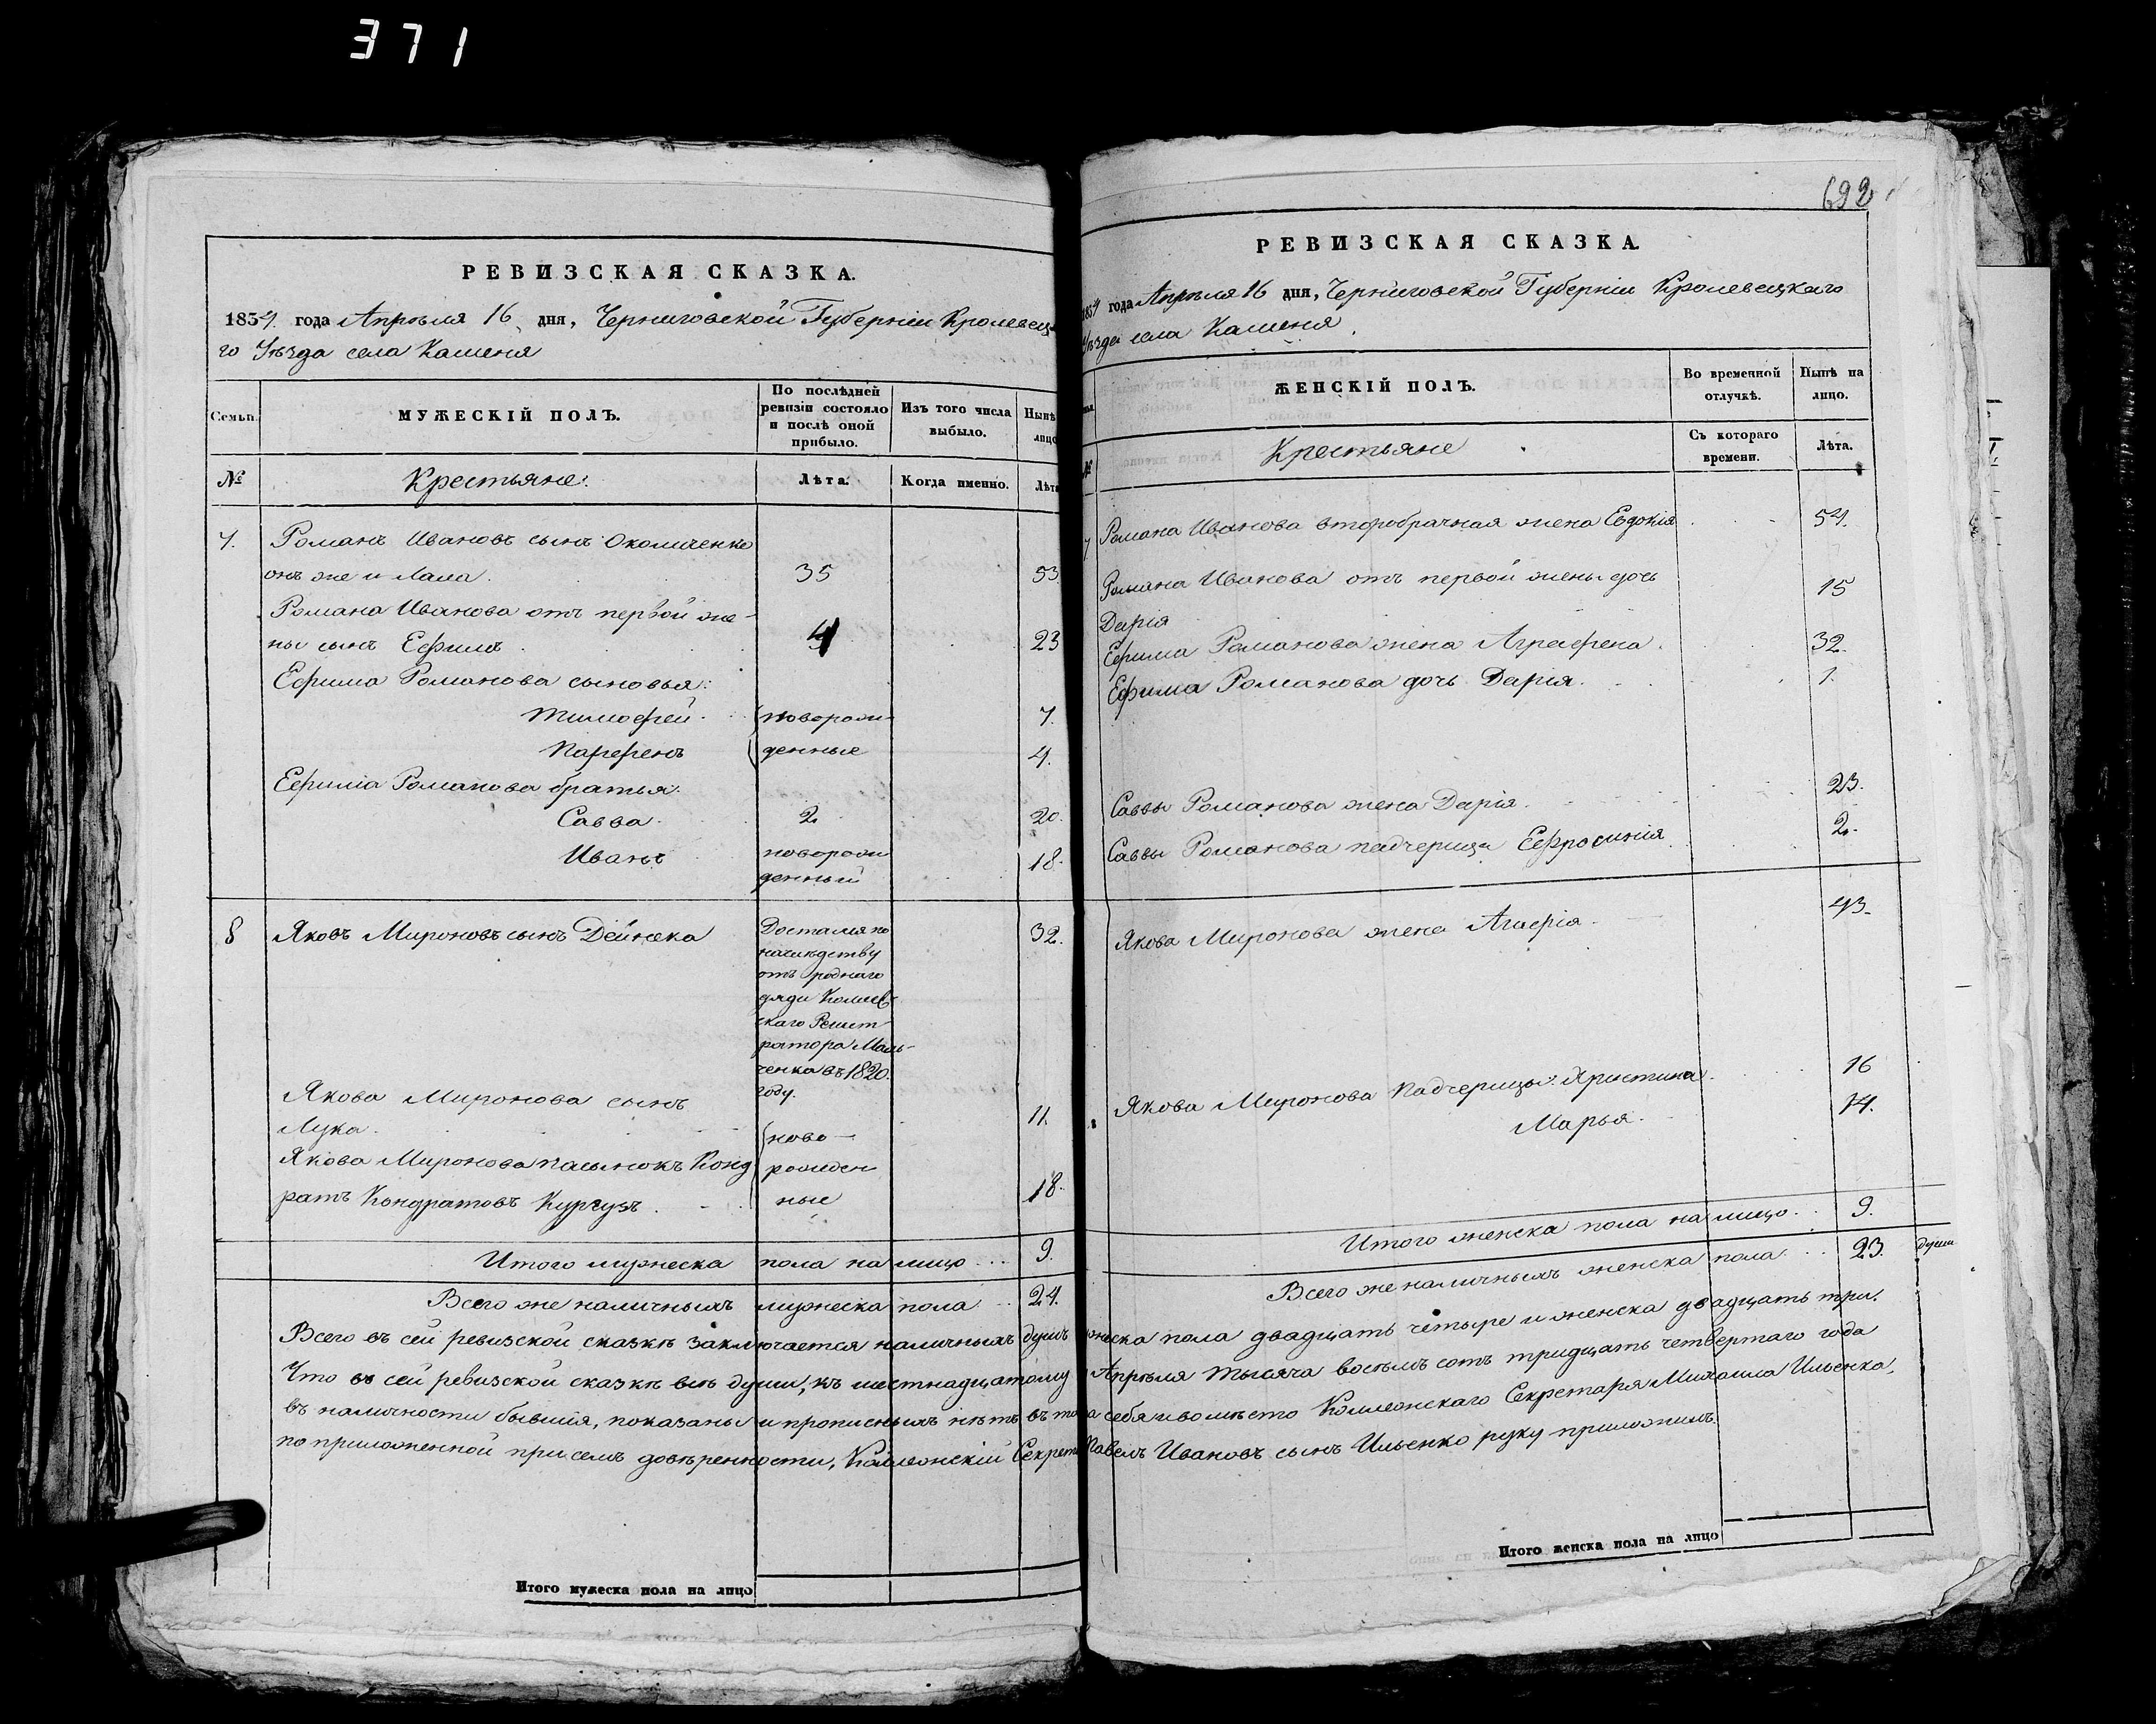 371
РЕВИЗСКАЯ СКАЗКА.
1834. года Апрѣля 16 дня, Черниговской Губерніи Кролевец-
го Уѣзда села Каменя
Семьи.
МУЖЕСКІЙ ПОЛЪ.
По послѣдней ревизіи состояло и послѣ оной прибыло.
Изъ того числа выбыло.
Нынѣ лицо
№
Крестьяне.
Лѣта.
Когда именно.
Лѣта
7. Романъ Ивановъ сынъ Околиченко
онъ же и Лама. 35 53.
Романа Иванова отъ первой же-
ны сынъ Ефимъ 4 23
Ефима Романова сыновья:
Тимофей. новорож- 7.
Парфенъ денные 4.
Ефима Романова братья.
Савва. 2. 20.
Иванъ новорож 18.
денный
8 Яковъ Мироновъ сынъ Дейнека 32.
Достался по
наслѣдству
отъ роднаго
дяди Колеж-
скаго Регист
ратора Маль-
ченка въ 1820.
году.
Якова Миронова сынъ
Лука. ново- 11.
Якова Миронова пасынокъ Конд рожден
ратъ Кондратовъ Кургузъ ные 18.
Итого мужеска пола на лицо ... 9.
Всего же наличныхъ мужеска пола ... 24.
Всего въ сей ревизской сказкѣ заключается наличныхъ душъ
Что въ сей ревизской сказкѣ всѣ души, къ шестнадцатому
въ наличности бывшія, показаны и прописныхъ нѣтъ въ то
по приложенной при семъ довѣренности, Коллежскій Секрет
Итого мужеска пола на лицо
692
РЕВИЗСКАЯ СКАЗКА.
1834 года Апрѣля 16 дня, Черниговской Губерніи Кролевецкаго
Уѣзда села Каменя.
ЖЕНСКІЙ ПОЛЪ.
Во временной отлучкѣ.
Нынѣ на лицо.
№
Крестьяне
Съ котораго времени.
Лѣта.
7 Романа Иванова второбрачная жена Евдокія 54.
Романа Иванова отъ первой жены дочь 15
Дарія
Ефима Романова жена Аграфена. 32.
Ефима Романова дочь Дарія. 1.
Саввы Романова жена Дарія. 23.
Саввы Романова падчерица Ефросинія 2.
Якова Миронова жена Агафія. 43.
Якова Миронова падчерицы: Христина. 16
Марья. 14.
Итого женска пола на лицо. 9.
Всего же наличныхъ женска пола. 23. души
жеска пола двадцать четыре и женска двадцать три.
Апрѣля тысяча восемъ сотъ тридцать четвертаго года
себя и вомѣсто Коллежскаго Секретаря Михаила Ильенка,
Павелъ Ивановъ сынъ Ильенко руку приложилъ.
Итого женска пола на лицо